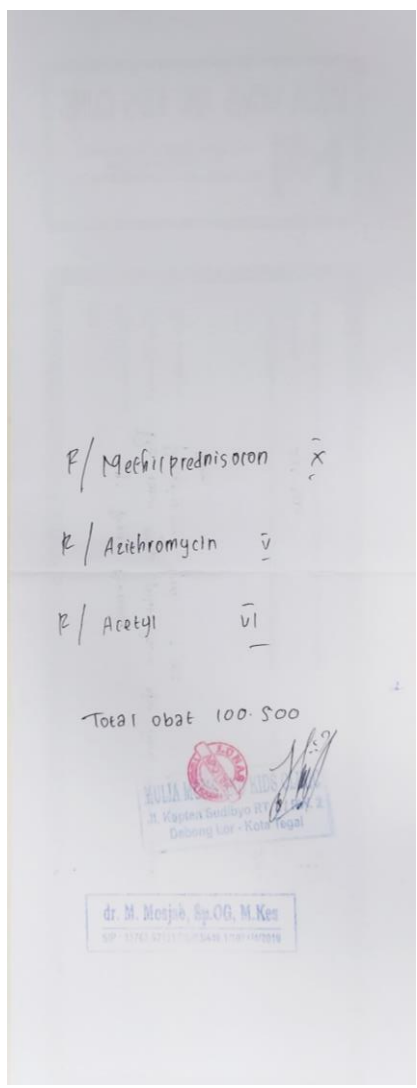 R/ Methilprednisolon X
R/ Azithromycin V
R/ Acetyl VI
Total obat 100.500
LUNAS
MULIA KIDS
Jl. Kapten Sudibyo RT
Debong Lor - Kota Tegal
dr. M. Mosjab, Sp.OG, M.Kes
SIP